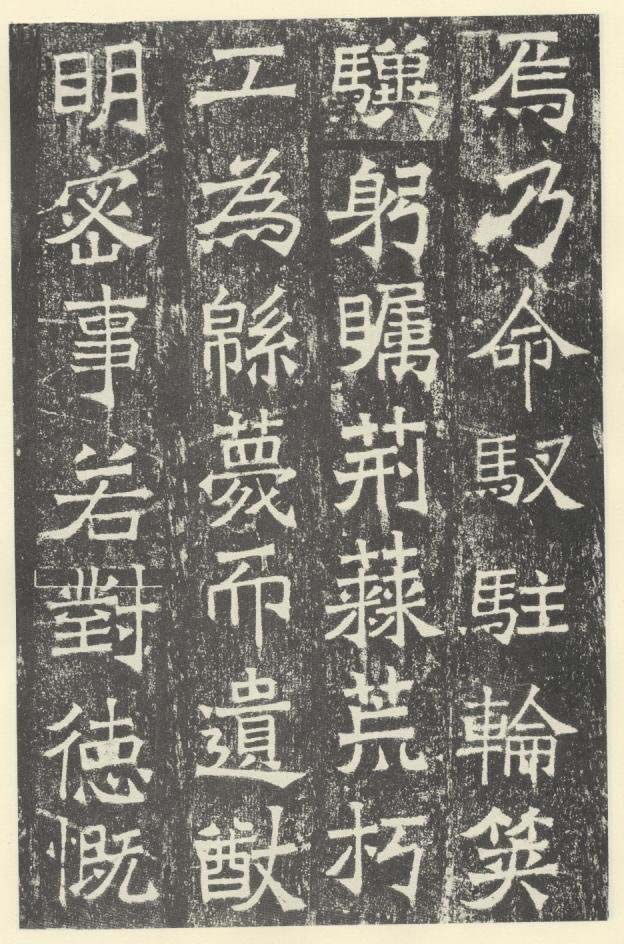 焉乃命馭駐輪筴
驥躬矚荆蕀荒朽
工為緜薎而遺猷
明密事若對徳慨